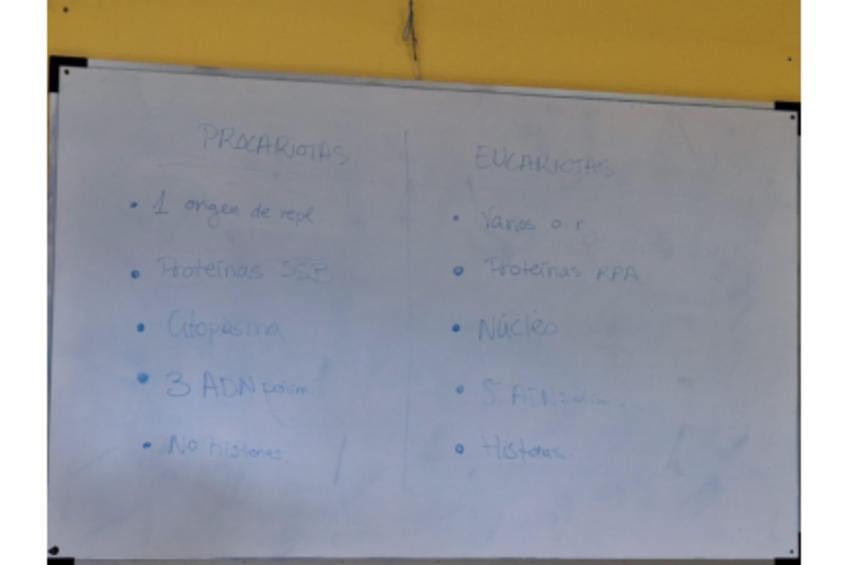 PROCARIOTAS
• 1 origen de repl
• Proteínas SSB
• Citoplasma
• 3 ADN polim.
• No histonas.
EUCARIOTAS
• Varios o. r
• Proteínas RPA
• Núcleo
• 5 ADN polim.
• Histonas.